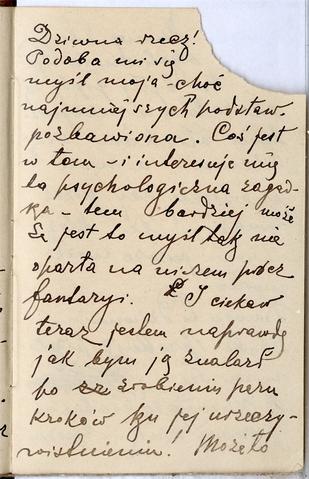 Dziwna rzecz!
Podoba mi się
myśl moja - choć
najmniejszych podstaw.
pozbawiona. Coś jest
w tem - i interesuje mię
ta psychologiczna zagad-
ka - tem bardziej może
że jest to myśl tak nie
oparta na niczem prócz
fantazyi. I ciekaw
teraz jestem naprawdę
jak bym ją znalazł
po zrobieniu paru
kroków ku jej urzeczy-
wistnieniu! Możeto